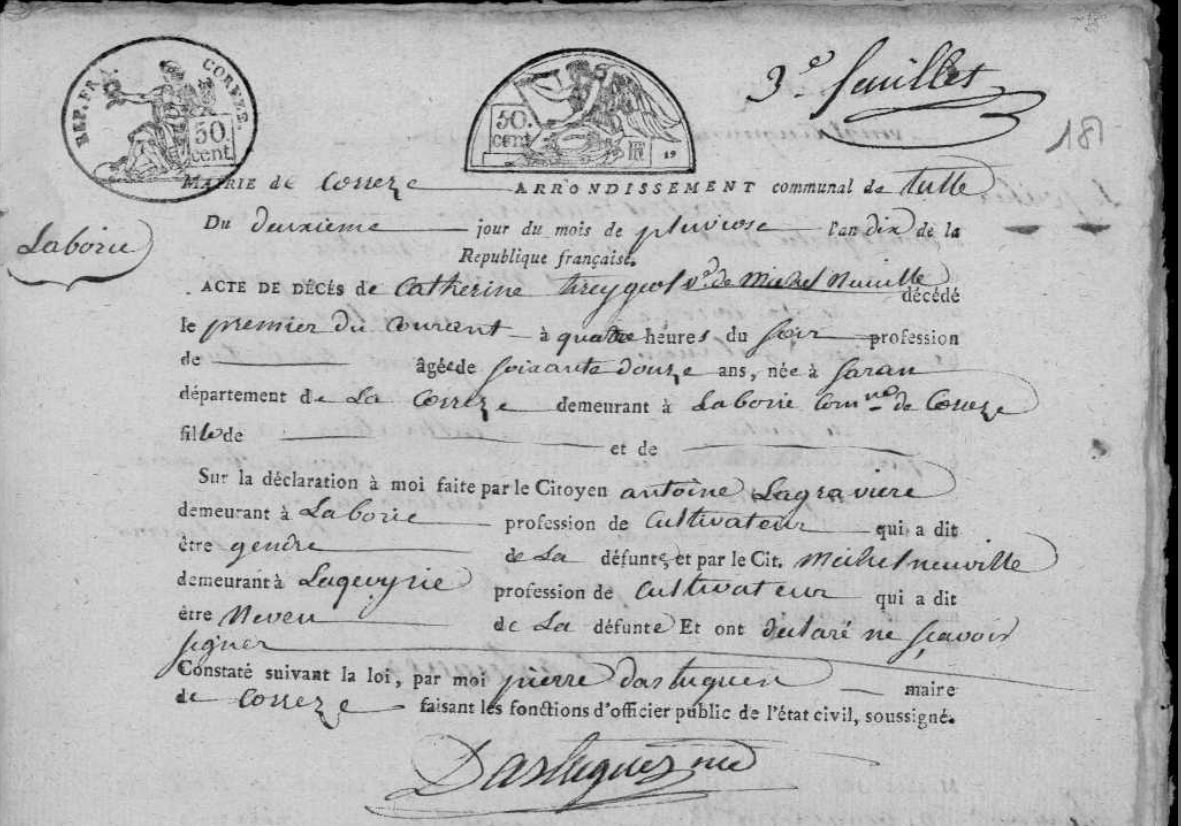 REP. FRA. CORREZE.
50 cent.
50. cent
19
3e feuillet
181
MAIRIE de Correze ARRONDISSEMENT communal de tulle
Laborie
Du deuxieme jour du mois de pluviose l'an dix de la
Republique française.
ACTE DE DÉCÉS de Catherine treygnol ve. de Michel Neuville décédé
le premier du Courant à quatre heures du soir profession
de âgée de soixante douze ans, née à saran
département de La Correze demeurant à Laborie Comne de Correze
fille de et de
Sur la déclaration à moi faite par le Citoyen antoine Lagraviere
demeurant à Laborie profession de Cultivateur qui a dit
être gendre de La défunte, et par le Cit. Michel neuville
demeurant à profession de Cultivateur qui a dit
être Neveu de La défunte Et ont declaré ne sçavoir
signer
Constaté suivant la loi, par moi pierre Dastuguer maire
de Correze faisant les fonctions d'officier public de l'état civil, soussigné.
Dastuguer me